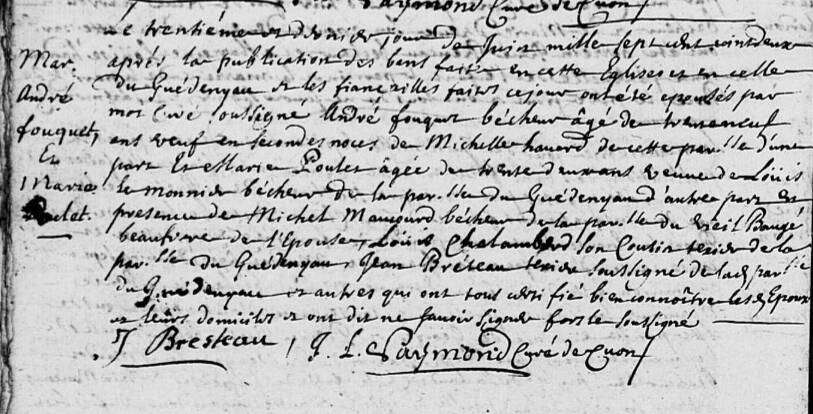 Raymond Curé de Cuon
Le trentiéme et dernier jour de Juin mille sept cent
après la publication des bans faite en cette Eglise et en celle
du Guédenyau et les fiançailles faites ce jour ont été epousés par
moi Curé soussigné André fouquet bécheur âgé de trente neuf
ans veuf en secondes noces de Michelle havard de cette par.sse d'une
part Et Marie Poulet âgée de trente deux ans veuve de Loüis
le monnier bécheur de la par.sse du Guédenyau d'autre part en
presence de Michel Maugourd bécheur de la par.sse du vieil Baugé
beaufrere de l'Epouse, Loüis Chalambard son Cousin texier de la
par.sse du Guédenyau, Jean Bréteau texier soussigné de lad. par.sse
du Guédenyau et autres qui ont tous certifié bien connoître lesd. Epoux
et leurs domiciles et ont dit ne savoir signer fors le soussigné
J Bresteau, J. L. Raymond Curé de Cuon
Mar.
André
fouquet,
Et
Marie
Poulet.